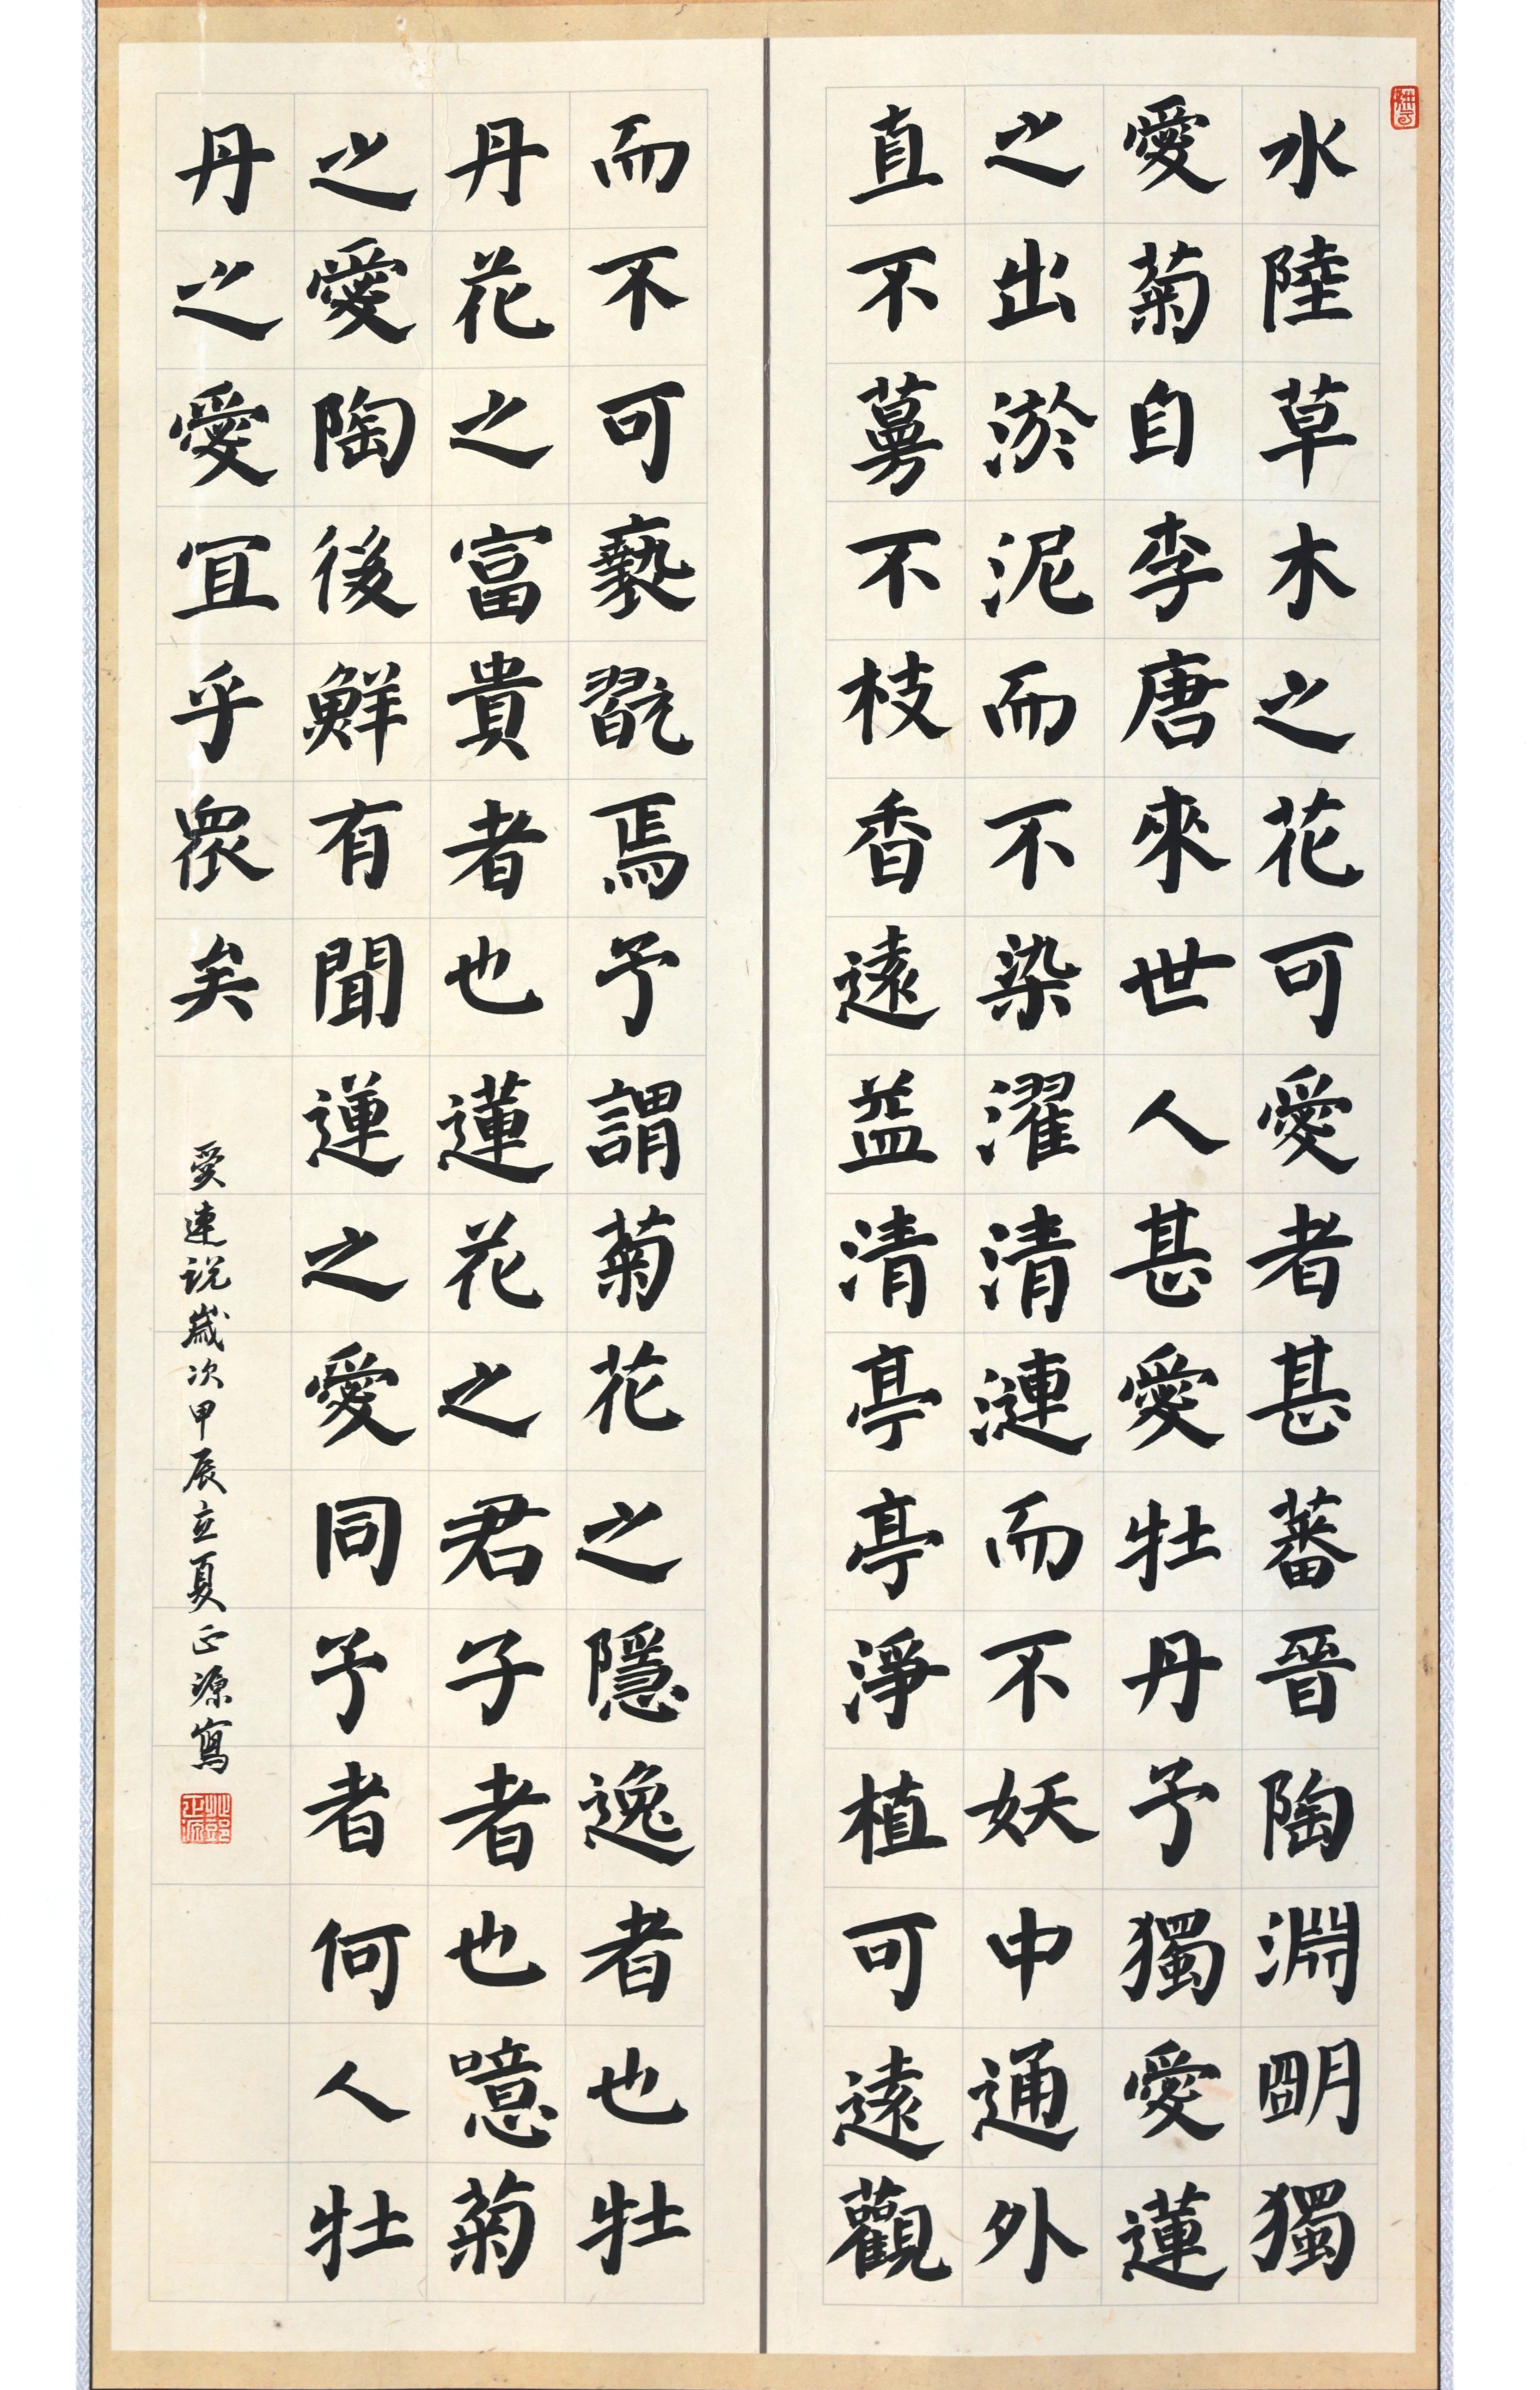 水陸草木之花可愛者甚蕃晉陶淵明獨
愛菊自李唐來世人甚愛牡丹予獨愛蓮
之出淤泥而不染濯清漣而不妖中通外
直不蔓不枝香遠益清亭亭淨植可遠觀
而不可褻翫焉予謂菊花之隱逸者也牡
丹花之富貴者也蓮花之君子者也噫菊
之愛陶後鮮有聞蓮之愛同予者何人牡
丹之愛宜乎眾矣
愛連说歲次甲辰立夏正源寫